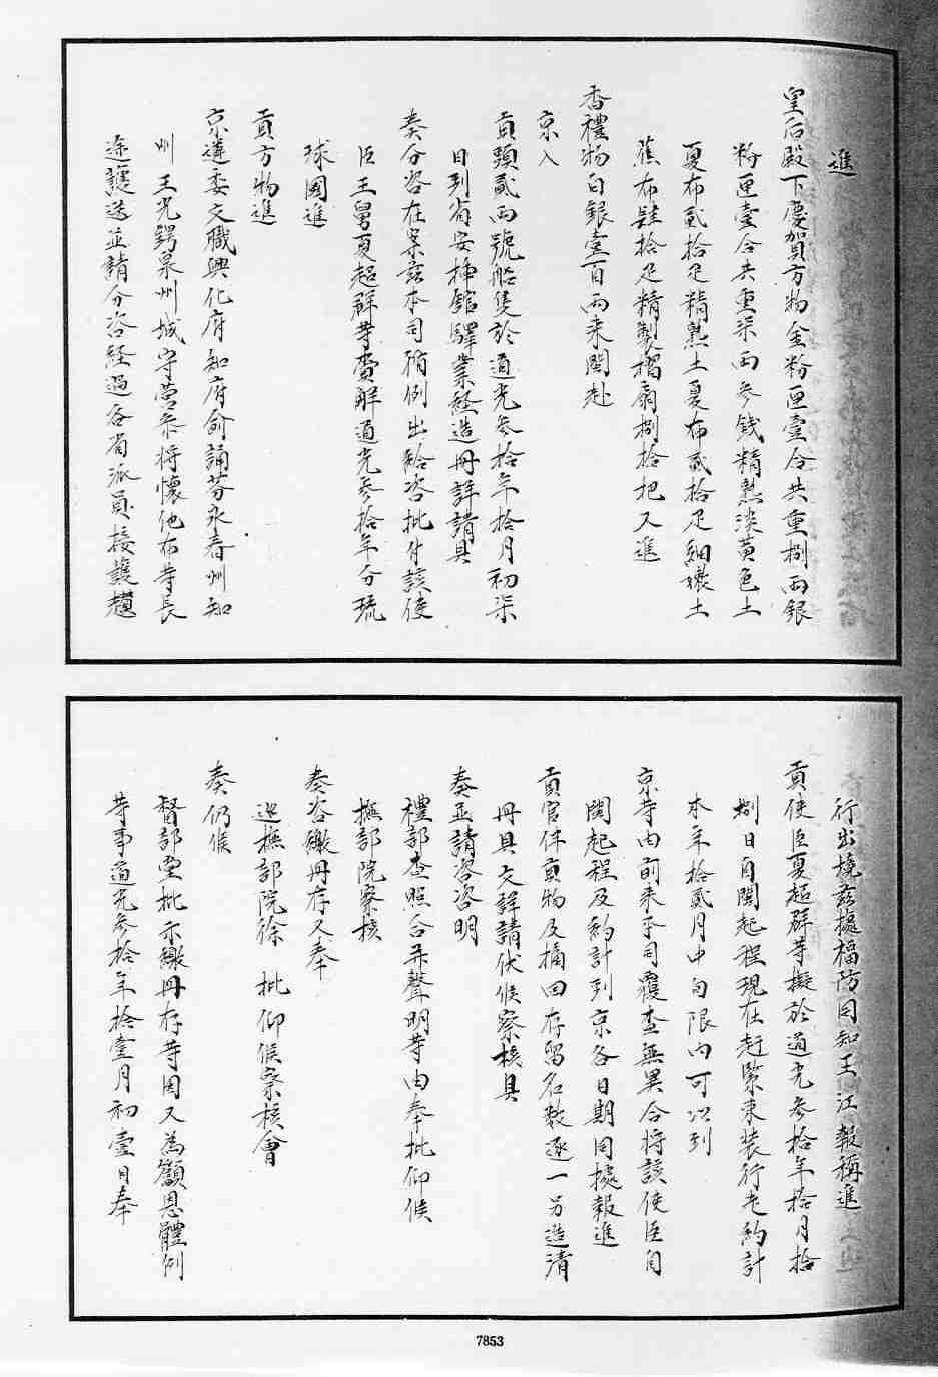 進
皇后殿下慶賀方物金粉匣壹合共重捌両銀
粉匣壹合共重柒両参錢精熟淡黃色土
夏布貳拾疋精熟土夏布貳拾疋細嫩土
蕉布肆拾疋精製摺扇捌拾把又進
香禮物白銀壹百両来閩赴
京入
貢頭貳両號船隻於道光参拾年拾月初柒
日到省安揷館驛業経造冊詳請具
奏分咨在案茲本司循例出給咨批付該使
臣王舅夏超群等賚解道光参拾年分琉
球國進
貢方物進
京遴委文職興化府知府俞誦芬永春州知
州王光鍔泉州城守營参将懷他布等長
途護送並請分咨経過各省派員接護趲
行出境茲據福防同知王江報稱進
貢使臣夏超群等擬於道光参拾年拾月拾
捌日自閩起程現在赶緊束装行走約計
本年拾貳月中旬限內可以到
京等由前来本司覆查無異合将該使臣自
閩起程及約計到京各日期同據報進
貢官伴貢物及摘回存留名数逐一另造清
冊具文詳請伏候察核具
奏並請咨咨明
禮部查照合并聲明等由奉批仰候
撫部院察核
奏咨繳冊存又奉
巡撫部院徐 批仰候察核會
奏仍候
督部堂批示繳冊存等因又為籲恩體例
等事道光参拾年拾壹月初壹日奉
7853